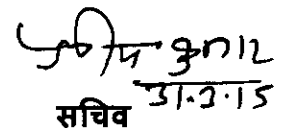 कुमार
31.3.15
सचिव